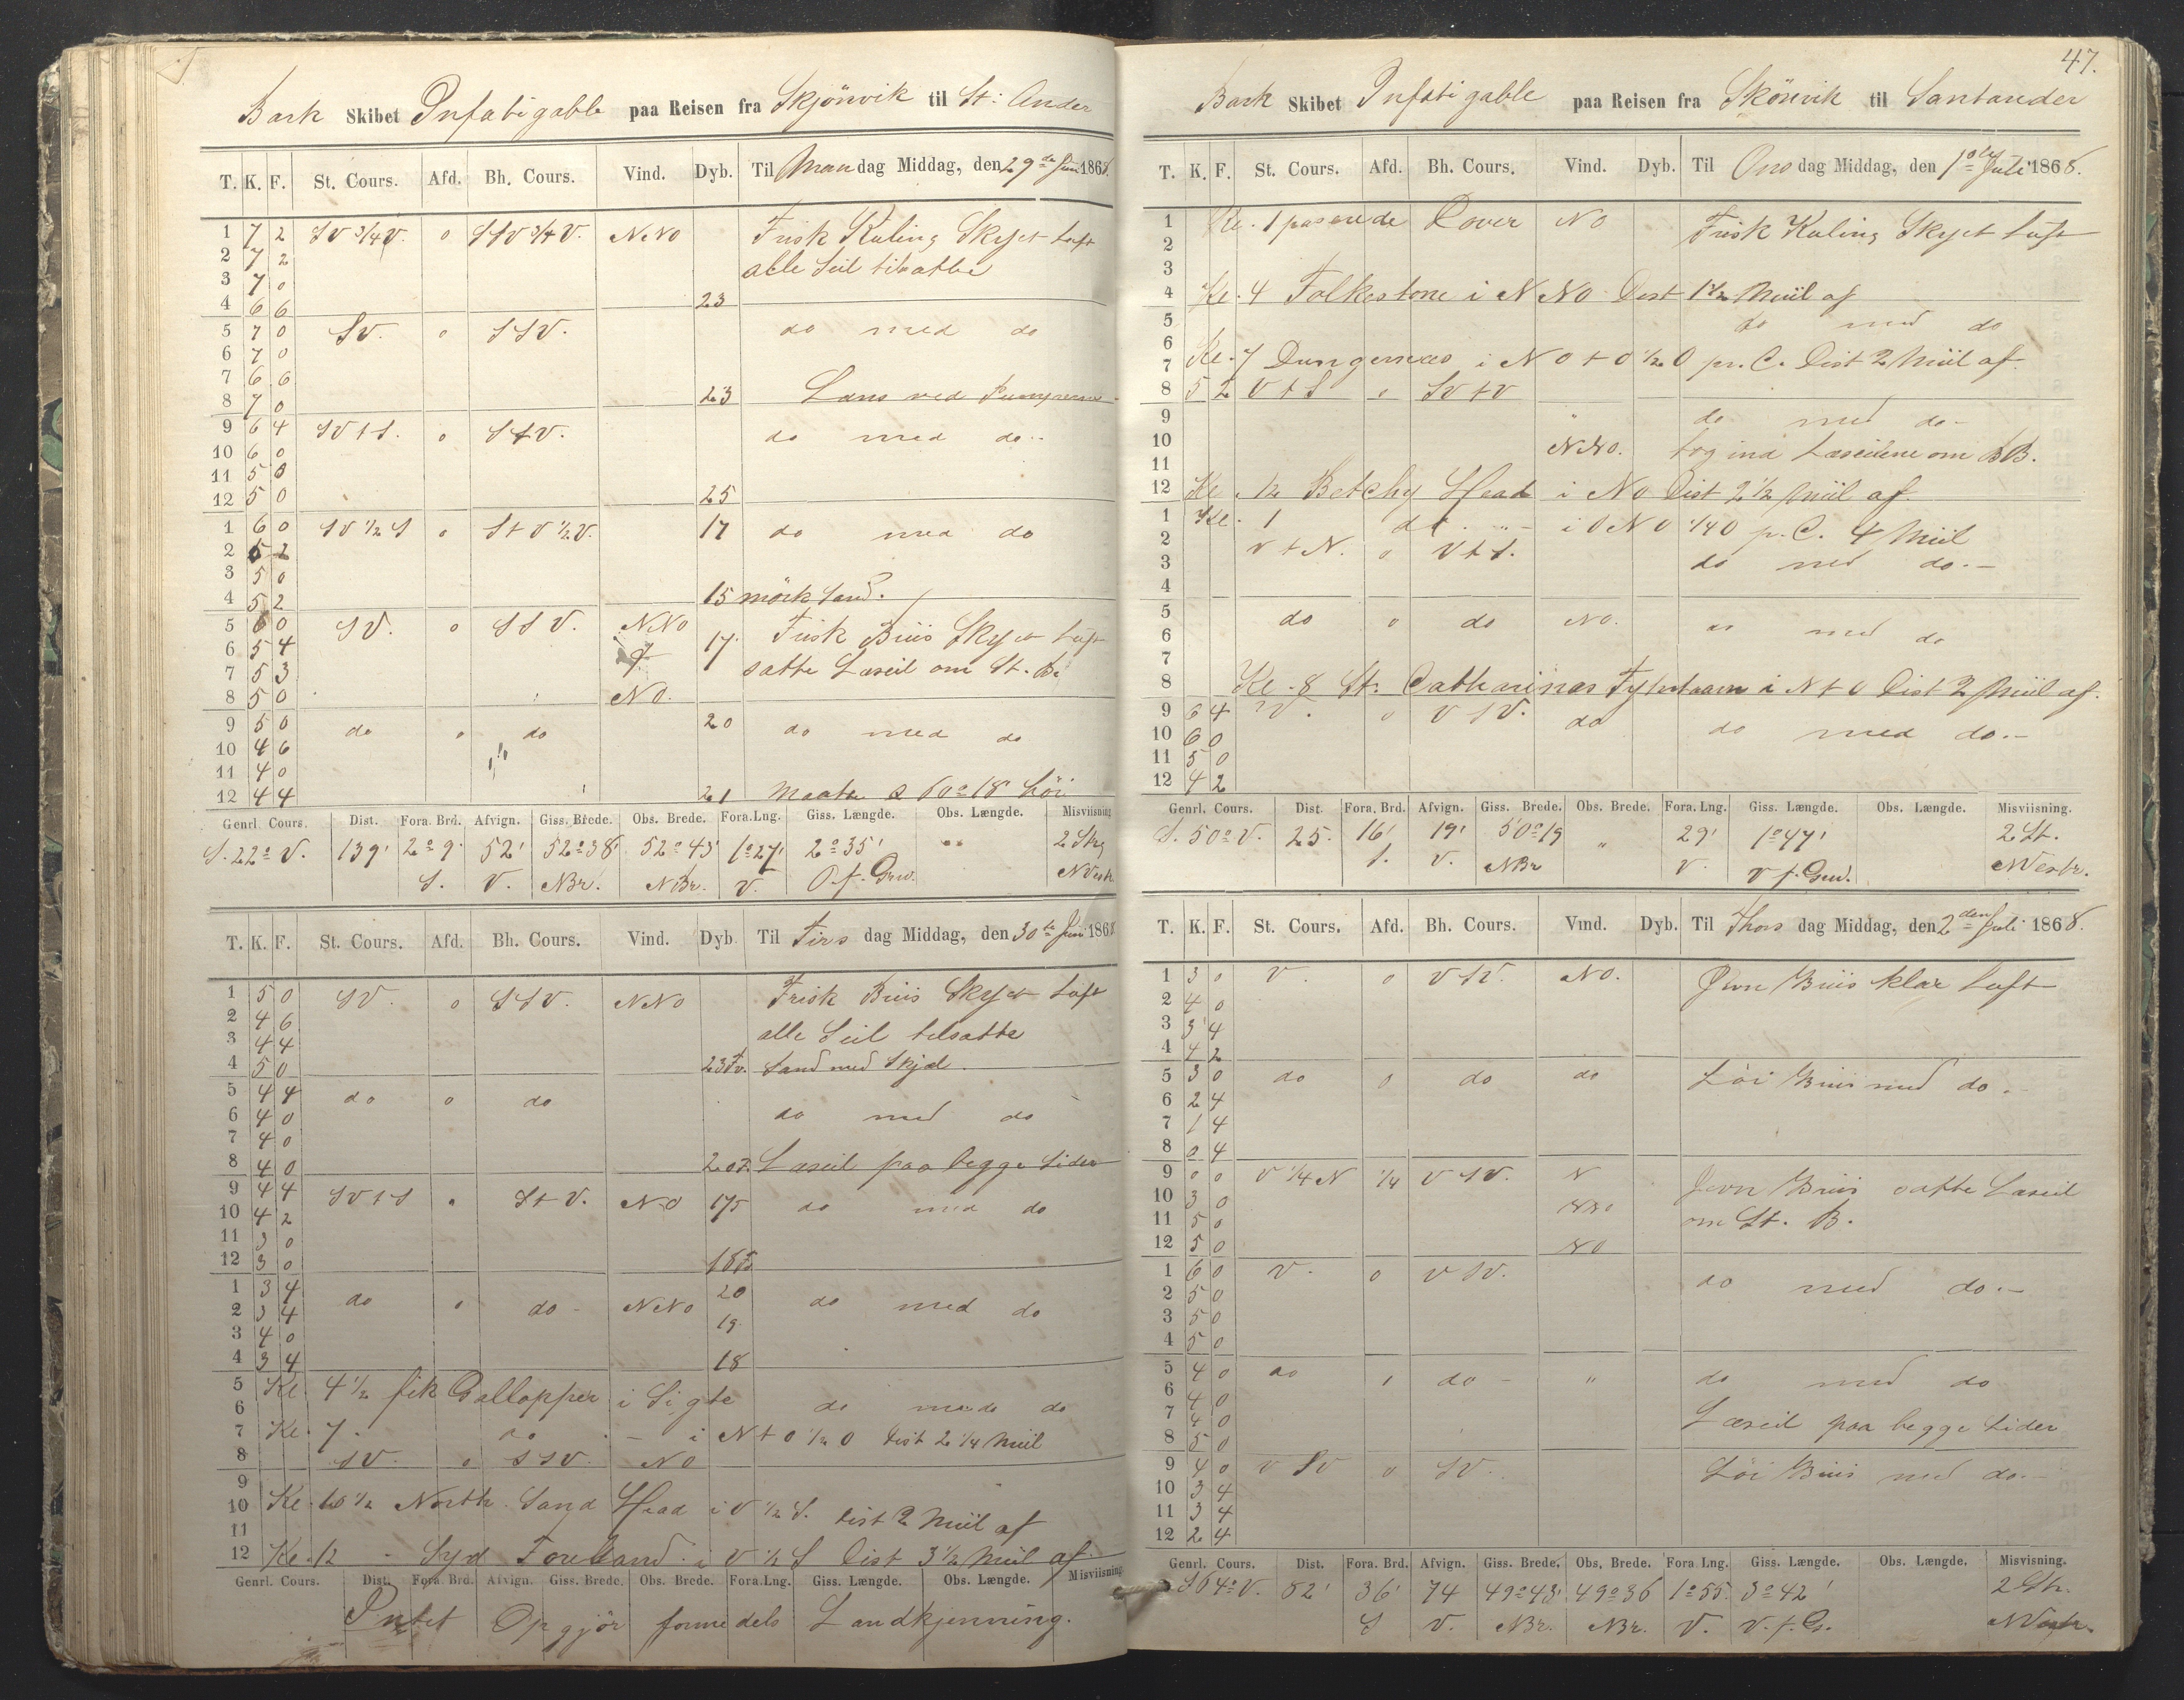 Bark Skibet Infatigable paa Reisen fra Skjönvik til St: Ander
T. K. F. St. Cours. Afd. Bh. Cours. Vind. Dyb. Til Mandag Middag, den 29de Juni 1868.
1 7 2 SV 3/4 V. 0 SSV 3/4 V. NNO Frisk Kuling Skyet Luft
2 7 2 alle Seil tilsatte
3 7 0
4 6 6 23
5 7 0 SV. 0 SSV. do med do
6 7 0
7 6 6
8 7 0 23 Lens ved Pumperne
9 6 4 SV t S. 0 S t V. do med do
10 6 0
11 5 0
12 5 0 25
1 6 0 SV 1/2 S 0 S t V 1/2 V. 17 do med do
2 5 2
3 5 0
4 5 2 15 mörk Sand.
5 6 0 SV. 0 SSV. NNO 17. Frisk Briis Skyet Luft
6 5 4 satte Læseil om St. B.
7 5 3
8 5 0 NO.
9 5 0 do 0 do 20 do med do
10 4 6
11 4 0
12 4 4 21
Genrl. Cours. Dist. Fora. Brd. Afvign. Giss. Brede. Obs. Brede. Fora. Lng. Giss. Længde. Obs. Længde. Misviisning
S. 22° V. 139' 2° 9' 52' 52° 38' 52° 43' 1° 27' 2° 35' " 2 Streg
S. V. NBr. NBr. V. O. f. Grw. NVestr
T. K. F. St. Cours. Afd. Bh. Cours. Vind. Dyb Til Tirsdag Middag, den 30te Juni 1868
1 5 0 SV. 0 SSV. NNO Frisk Briis Skyet Luft
2 4 6 alle Seil tilsatte
3 4 4
4 5 0 23 Fv. Sand med Skjæl.
5 4 4 do 0 do
6 4 0 do med do
7 4 0
8 4 0 20 F. Læseil paa begge Sider
9 4 4 SV t S 0 S t V. NO 17 do med do
10 4 2
11 3 0
12 3 0 18
1 3 4 do 0 do NNO 20 do med do
2 3 4 19
3 4 0
4 3 4 18
5 Kl 4 1/2 fik Gallopper i Sigte do med do
6
7 Kl 7 do i N t O 1/2 O Dist 2 1/4 Miil
8 SV. 0 SSV. NO
9
10 Kl 10 1/2 North Sand Head i V 1/2 S. Dist 2 Miil af
11
12 Kl. 12 Syd Foreland i V 1/2 S Dist 3 1/2 Miil af
Genrl. Cours. Dist. Fora. Brd. Afvign. Giss. Brede. Obs. Brede. Fora. Lng. Giss. Længde. Obs. Længde. Misviisning
Intet Opgjör formedels Landkjenning.
47.
Bark Skibet Infatigable paa Reisen fra Skönvik til Santander
T. K. F. St. Cours. Afd. Bh. Cours. Vind. Dyb. Til Onsdag Middag, den 1ste Juli 1868.
1 Kl. 1 passerede Dover NO Frisk Kuling Skyet Luft
2
3
4 Kl. 4 Folkestone i NNO Dist 1 1/2 Miil af
5 do med do
6
7 Kl. 7 Dungernæs i NO t O 1/2 O pr. C. Dist 2 Miil af
8 5 2 V t S 0 SV t V
9 " do med do
10 NNO. tog ind Læseilene om BB.
11
12 Kl. 12 Betchy Head i NO Dist 2 1/2 Miil af
1 Kl. 1 do " i ONO 1/4 O p. C. 4 Miil
2 V t N. 0 V t S.
3 do med do
4
5 do 0 do NO. do med do
6
7
8 Kl. 8 St. Catharinas Fyrtaarn i N t O Dist 2 Miil af.
9 6 4 V. 0 VSV. do
10 6 0 do med do
11 5 0
12 4 2
Genrl. Cours. Dist. Fora. Brd. Afvign. Giss. Brede. Obs. Brede. Fora. Lng. Giss. Længde. Obs. Længde. Misviisning.
S. 50° V. 25. 16' 19' 50° 19 " 29' 1° 47' 2 St.
S. V. NBr V. V f. Grw. NVestr.
T. K. F. St. Cours. Afd. Bh. Cours. Vind. Dyb. Til Thorsdag Middag, den 2den Juli 1868.
1 3 0 V. 0 VSV. NO. Jevn Briis klar Luft
2 4 0
3 3 4
4 4 2
5 3 0 do 0 do do Löi Briis med do
6 2 4
7 1 4
8 0 4
9 0 0 V 1/4 N 1/4 VSV. N Jevn Briis satte Læseil
10 3 0 NNO om St. B.
11 5 0
12 5 0 NO
1 6 0 V. 0 VSV. do med do
2 5 0
3 5 0
4 5 0
5 4 0 do do " do med do
6 4 0
7 4 0 Læseil paa begge Sider
8 5 0
9 4 0 VSV 0 SV. Löi Briis med do
10 3 4
11 3 4
12 2 4
Genrl. Cours. Dist. Fora. Brd. Afvign. Giss. Brede. Obs. Brede. Fora. Lng. Giss. Længde. Obs. Længde. Misvisning.
S 64° V. 82' 36' 74 49° 43' 49° 36 1° 55 3° 42' 2 Str.
S V. NBr. NBr. V. V. f. Gr. NVestr.